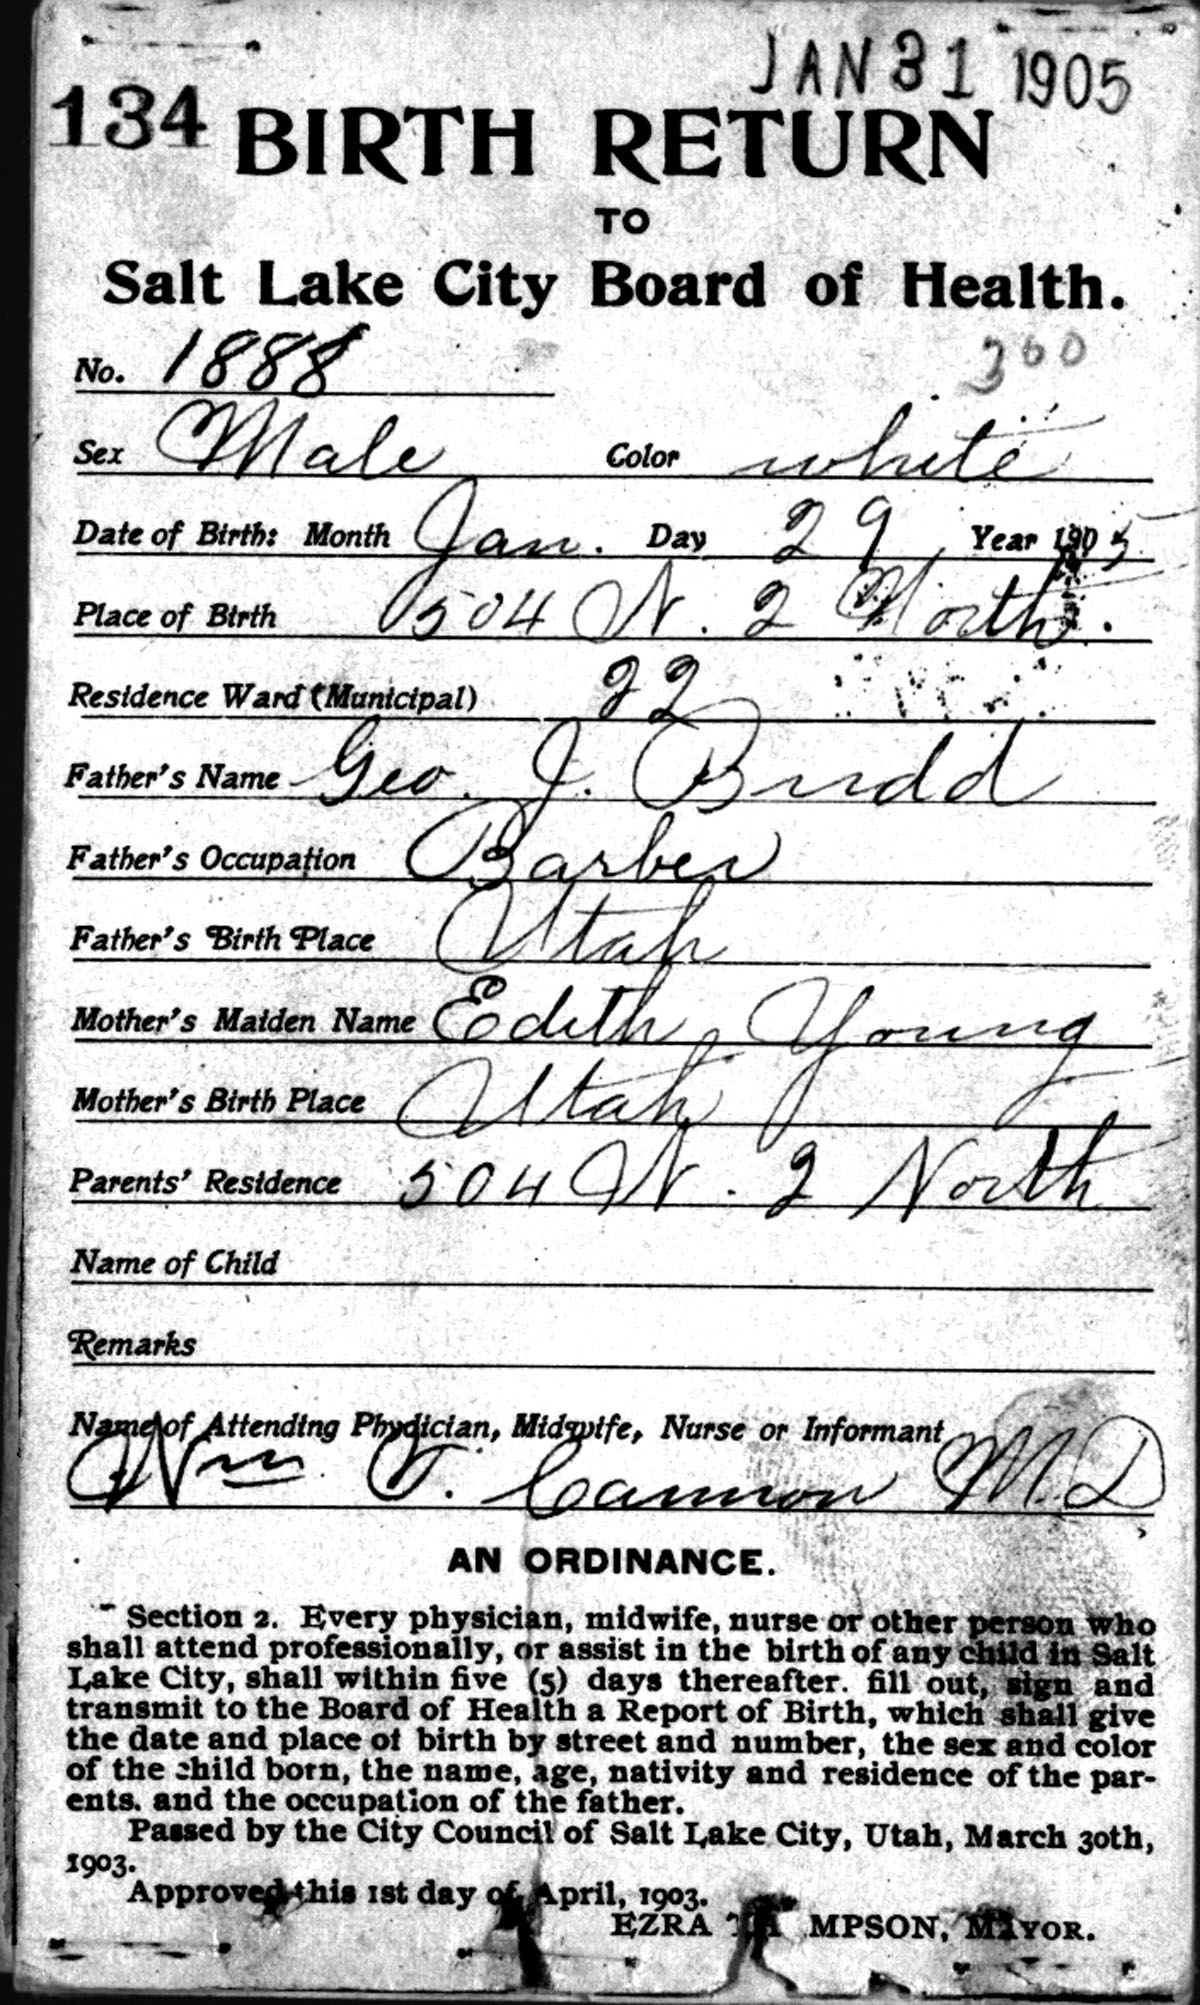 JAN 31 1905
134
BIRTH RETURN
TO
Salt Lake City Board of Health.
No. 1888
360
Sex Male Color white
Date of Birth: Month Jan. Day 29 Year 1905
Place of Birth 504 W. 2 North.
Residence Ward (Municipal) 22
Father's Name Geo. J. Budd
Father's Occupation Barber
Father's Birth Place Utah
Mother's Maiden Name Edith Young
Mother's Birth Place Utah
Parents' Residence 504 W. 2 North
Name of Child
Remarks
Name of Attending Phydician, Midwife, Nurse or Informant
Wm T. Cannon M.D
AN ORDINANCE.
Section 2. Every physician, midwife, nurse or other person who
shall attend professionally, or assist in the birth of any child in Salt
Lake City, shall within five (5) days thereafter. fill out, sign and
transmit to the Board of Health a Report of Birth, which shall give
the date and place of birth by street and number, the sex and color
of the child born, the name, age, nativity and residence of the par-
ents. and the occupation of the father.
Passed by the City Council of Salt Lake City, Utah, March 30th,
1903.
Approved this 1st day of April, 1903.
EZRA MPSON, MAYOR.